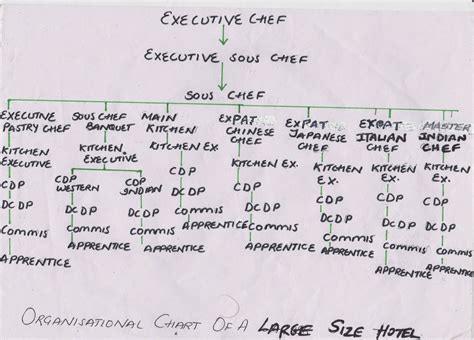 EXECUTIVE CHEF
EXECUTIVE SOUS CHEF
SOUS CHEF
EXECUTIVE
PASTRY CHEF
KITCHEN
EXECUTIVE
CDP
DCDP
Commis
APPRENTICE
SOUS CHEF
BANQUET
KITCHEN
EXECUTIVE
CDP
WESTERN
DCDP
Commis
APPRENTICE
CDP
INDIAN
DCDP
Commis
APPRENTICE
MAIN
KITCHEN
KITCHEN EX.
CDP
DCDP
Commis
APPRENTICE
EXPAT
CHINESE
CHEF
KITCHEN EX.
CDP
DCDP
Commis
APPRENTICE
EXPAT
JAPANESE
CHEF
KITCHEN
EX.
CDP
DCDP
Commis
APPRENTICE
EXPAT
ITALIAN
CHEF
KITCHEN
EX.
CDP
DCDP
Commis
APPRENTICE
MASTER
INDIAN
CHEF
KITCHEN
EX.
CDP
DCDP
Commis
APPRENTICE
ORGANISATIONAL CHART OF A LARGE SIZE HOTEL